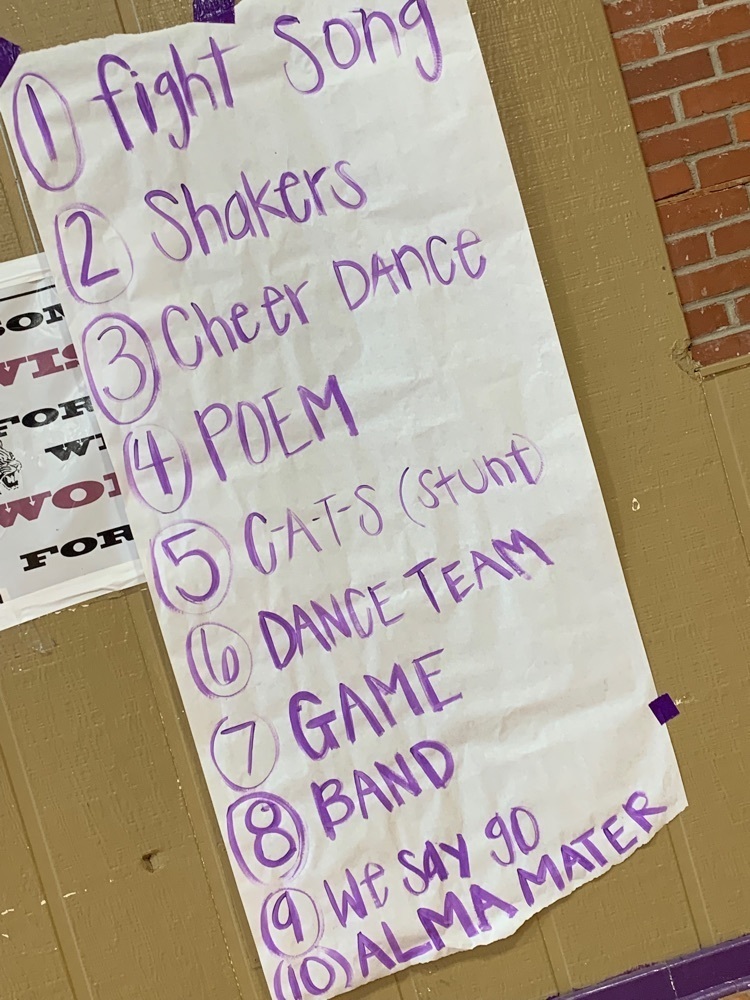 1 fight Song
2 Shakers
3 Cheer DANce
4 POEM
5 C-A-T-S (stunt)
6 DANCE TEAM
7 GAME
8 BAND
9 We say go
(10) ALMA MATER
FOR
FOR